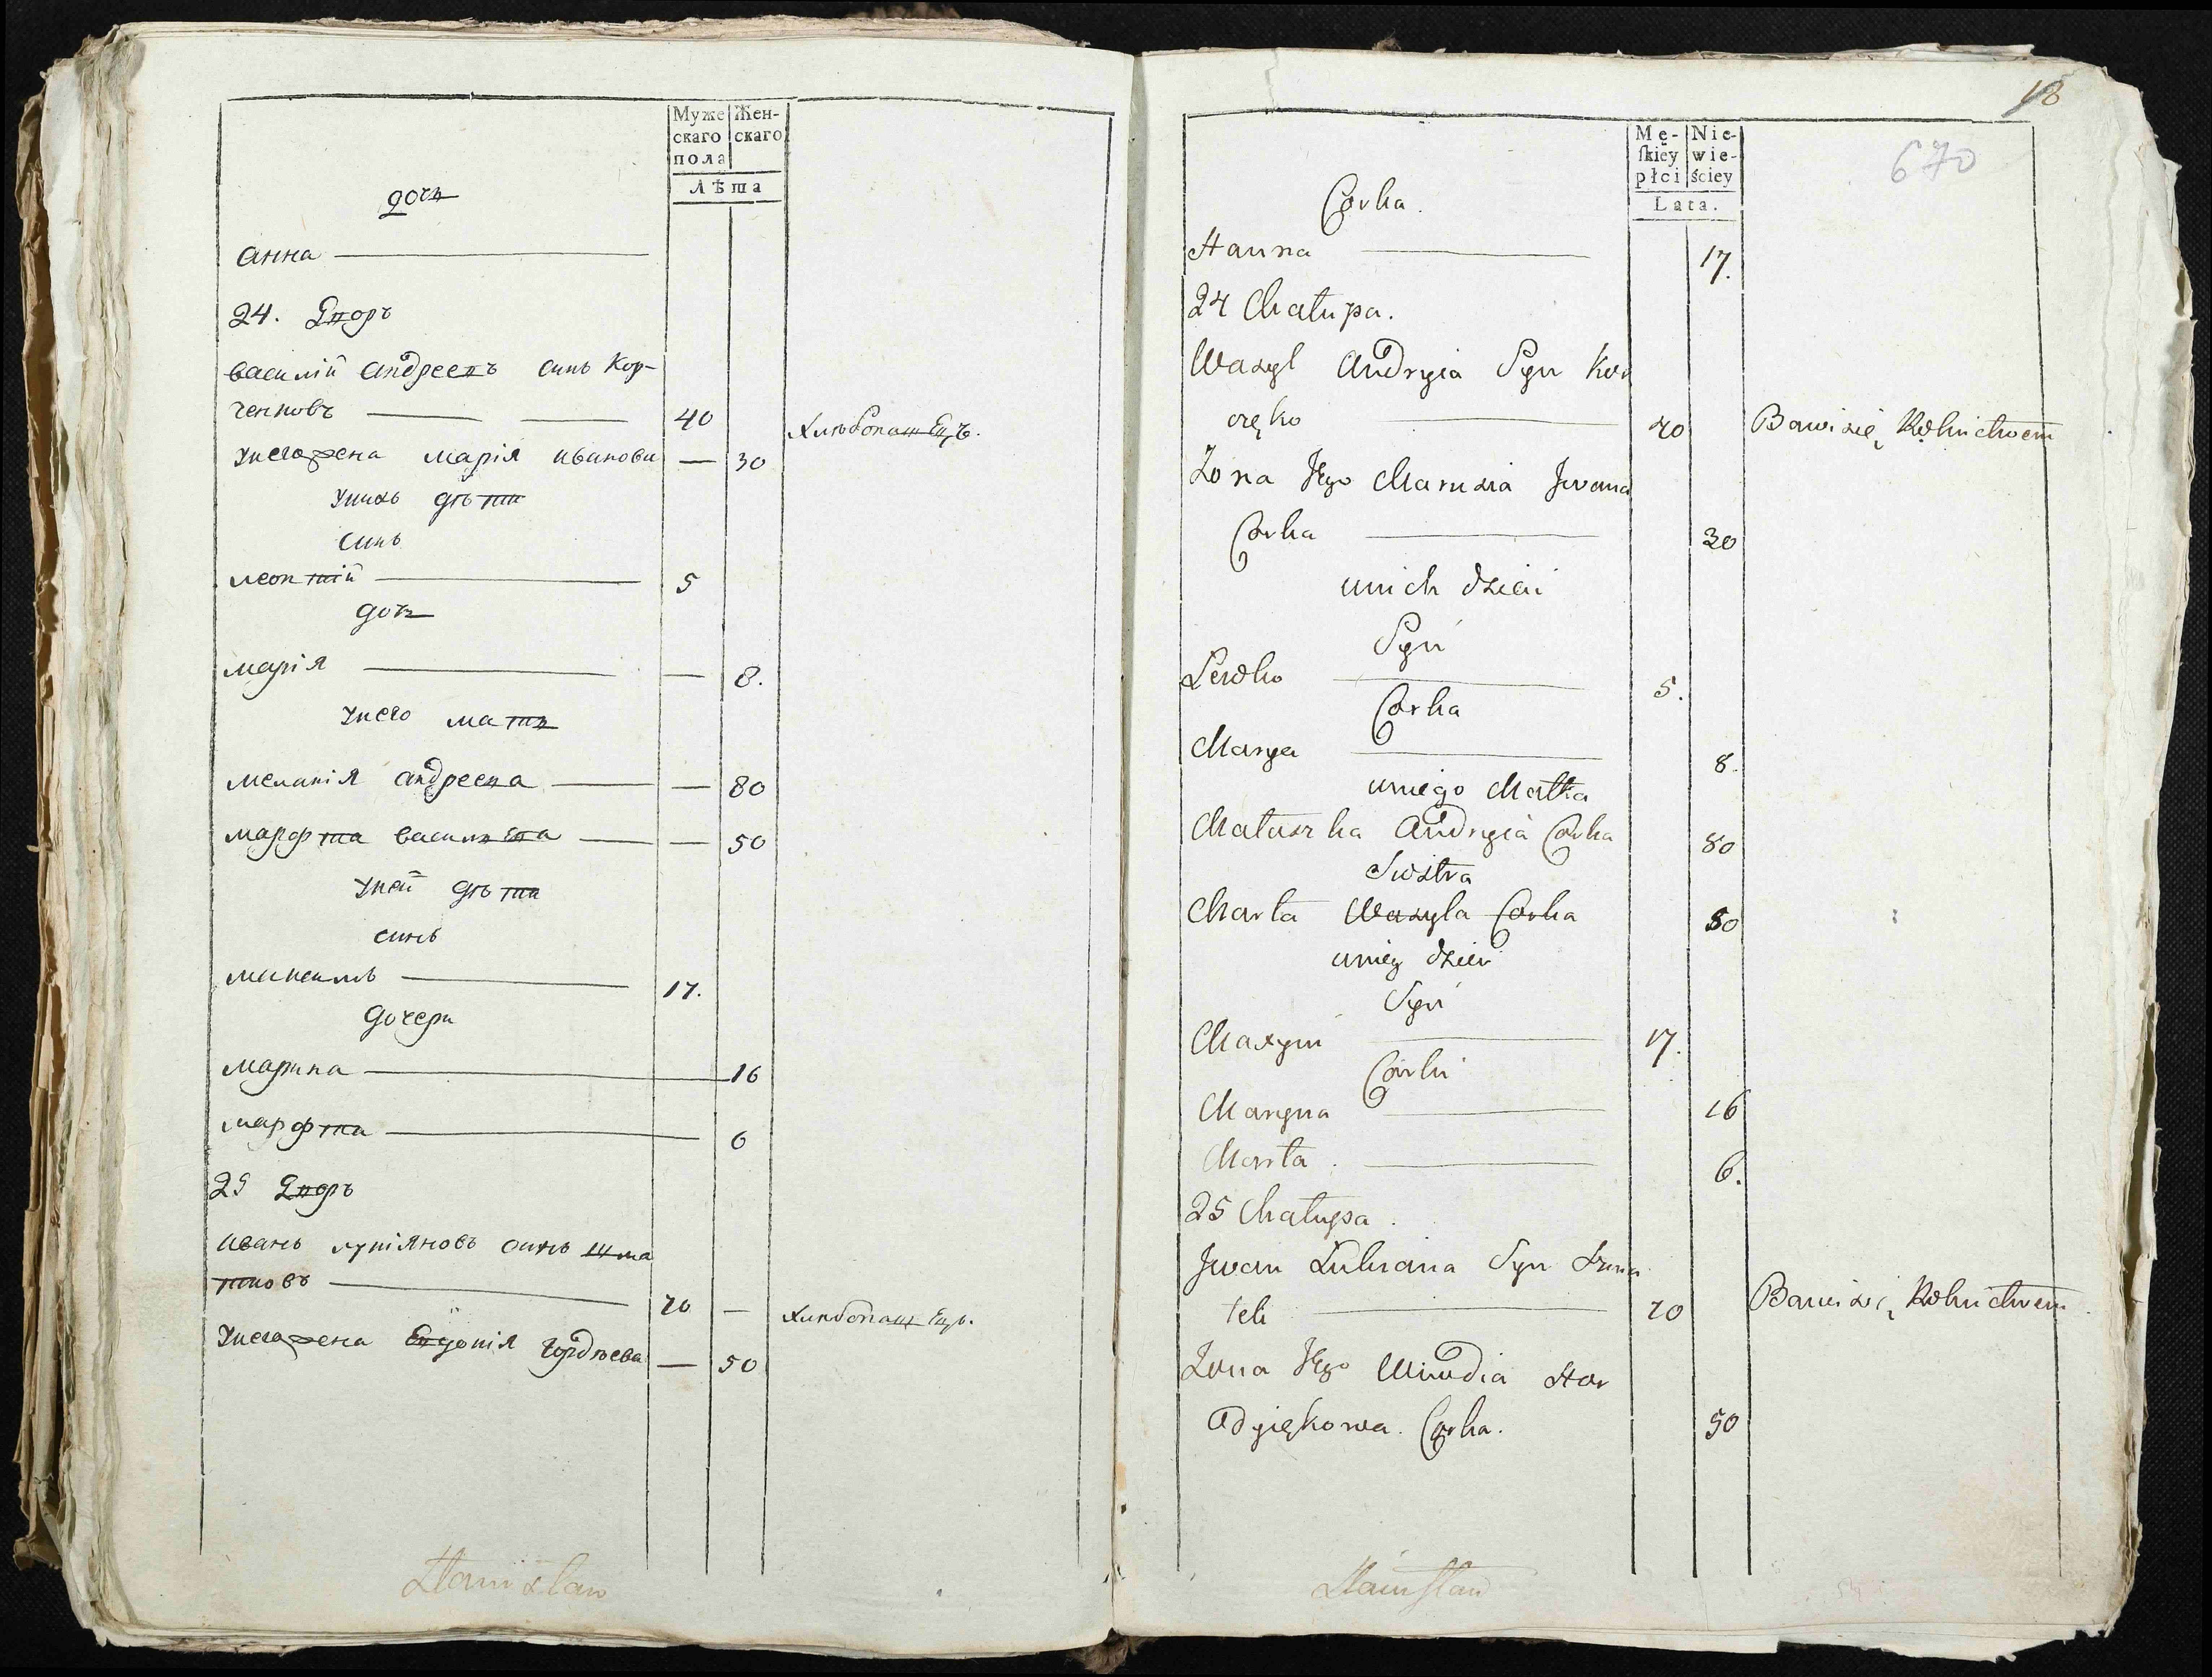 Муже
скаго
пола
Жен-
скаго
Лѣта
дочь
Анна
24. Дворъ
василій андреевъ синъ Кор-
ченковъ 40 Хлѣбопашецъ.
унегожена марія иванова — 30
унихъ дѣти
синъ
леонтій 5
дочь
марія — 8.
унего мать
меланія андреева — 80
марфта васильева — 50
уней дѣти
синъ
максимъ 17.
дочери
марина 16
марфта 6
25 Дворъ
иванъ лукіяновъ синъ шма
тковъ 70 — Хлѣбопашецъ.
унегожена Евдокія гордѣева — 50
Stanisław
18
670
Mę-
skiey
płci
Nie-
wie-
ściey
Lata.
Corka.
Hanna 17.
24 Chałupa.
Wasyl Andryia Syn Kor
częko 40 Bawi się Rolnictwem
Zona Jego Marusia Jwana
Corka 30
unich dzieci
Syn
Lewko 5.
Corka
Marya 8.
uniego Matka
Andryia Corka 80
Siostra
Marta Wasyla Corka 50
uniey dzieci
Syn
Maxym 17.
Corki
Maryna 16
Marta 6.
25 Chałupa.
Jwan Lukiana Syn Szma
tek 70 Bawi się Rolnictwem.
Zona Jego Hor
Corka. 50
Stanisław